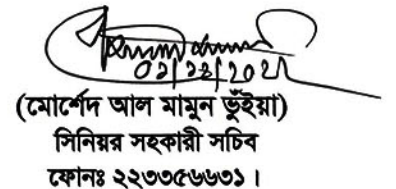 ০১/১২/২০২১
(মোর্শেদ আল মামুন ভুঁইয়া)
সিনিয়র সহকারী সচিব
ফোনঃ ২২৩৩৫৬৬৩১ ।